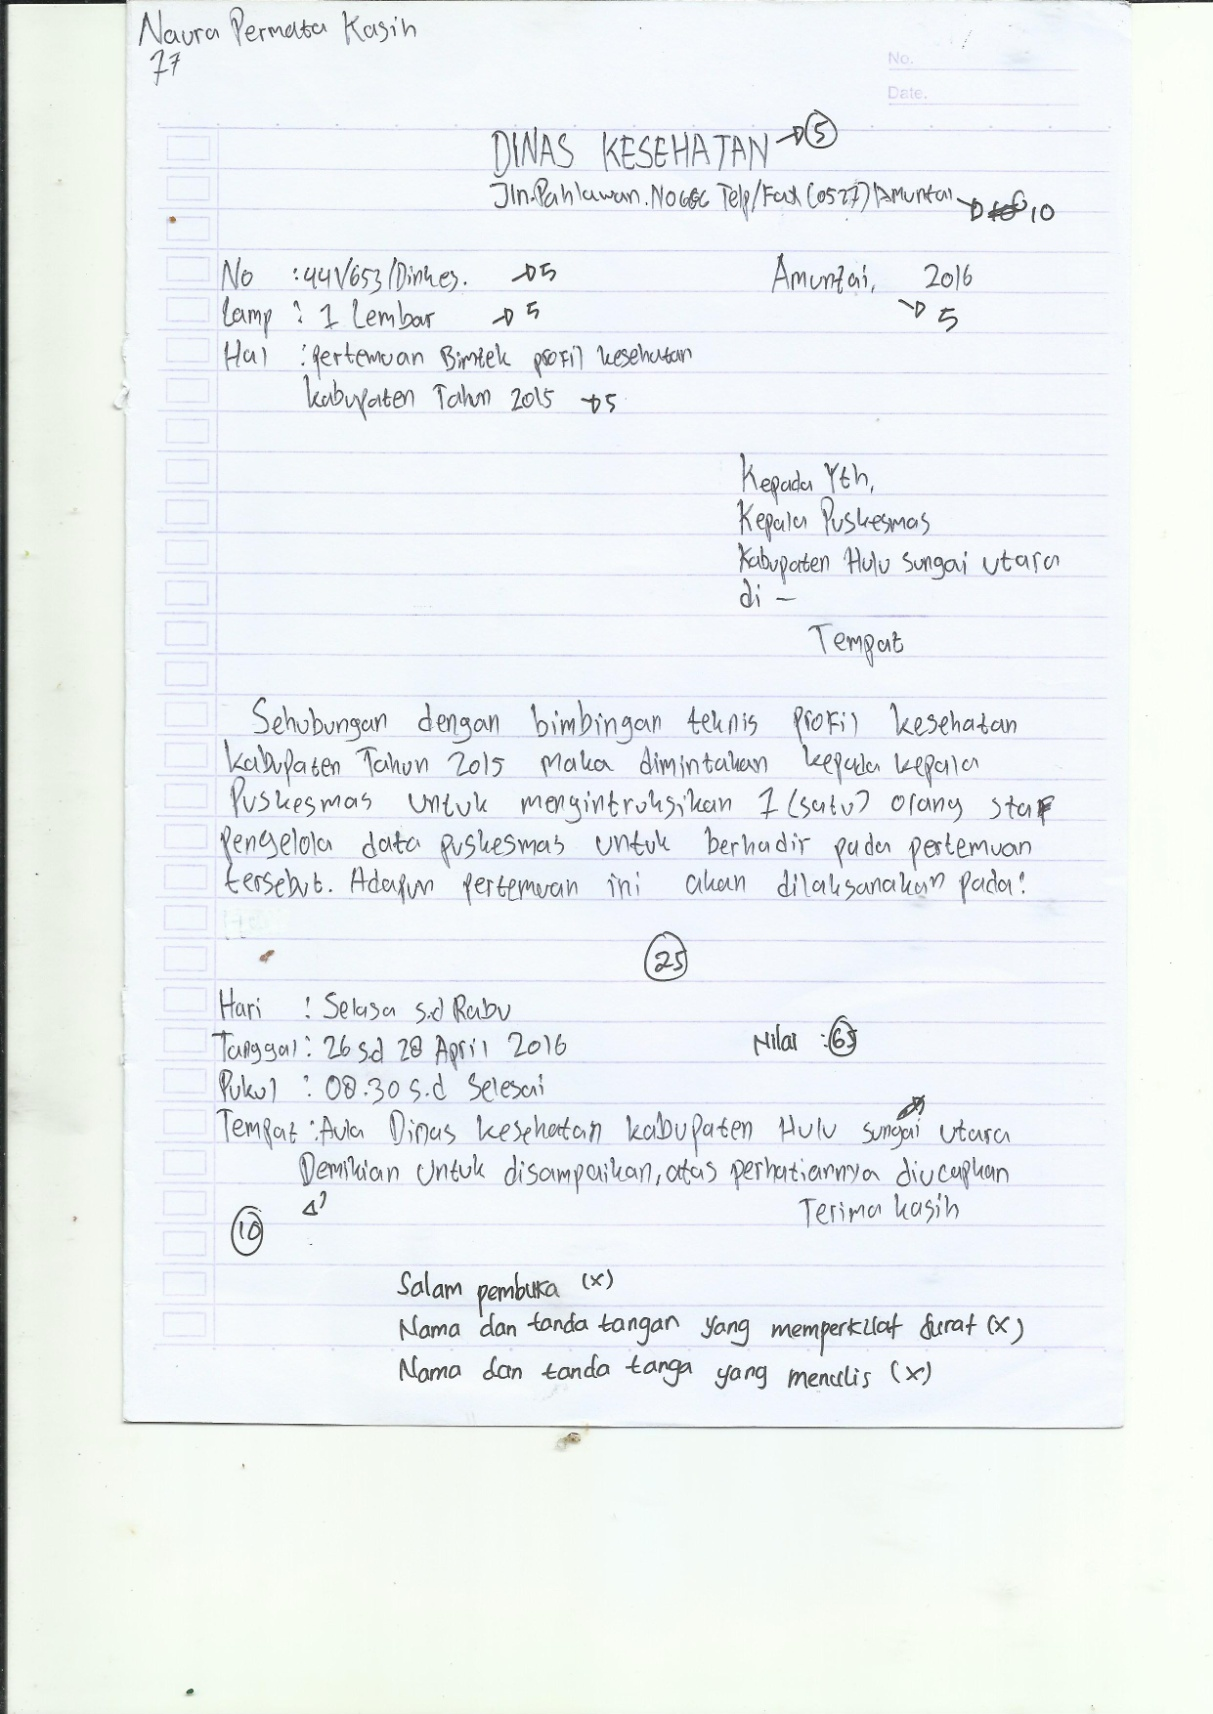 Naura Permata Kasih
77
No.
Date.
DINAS KESEHATAN → 5
Jln.Pahlawan.No Telp/Fax (0527) Amuntai → 10
No : 441/653/Dinkes. → 5 Amuntai, 2016
Lamp : 1 Lembar → 5 → 5
Hal : pertemuan Bimtek profil kesehatan
kabupaten Tahun 2015 → 5
Kepada Yth,
Kepala Puskesmas
Kabupaten Hulu Sungai utara
di –
Tempat
Sehubungan dengan bimbingan teknis profil kesehatan
kabupaten Tahun 2015 maka dimintakan kepada kepala
Puskesmas untuk mengintruksikan 1 (satu) orang staf
pengelola data puskesmas untuk berhadir pada pertemuan
tersebut. Adapun pertemuan ini akan dilaksanakan pada:
25
Hari : Selasa s.d Rabu
Tanggal : 26 s.d 28 April 2016 Nilai : 65
Pukul : 08.30 s.d Selesai
Tempat : Aula Dinas kesehatan kabupaten Hulu sungai utara
Demikian untuk disampaikan, atas perhatiannya diucapkan
Terima kasih
10
Salam pembuka (x)
Nama dan tanda tangan yang memperkuat surat (x)
Nama dan tanda tanga yang menulis (x)